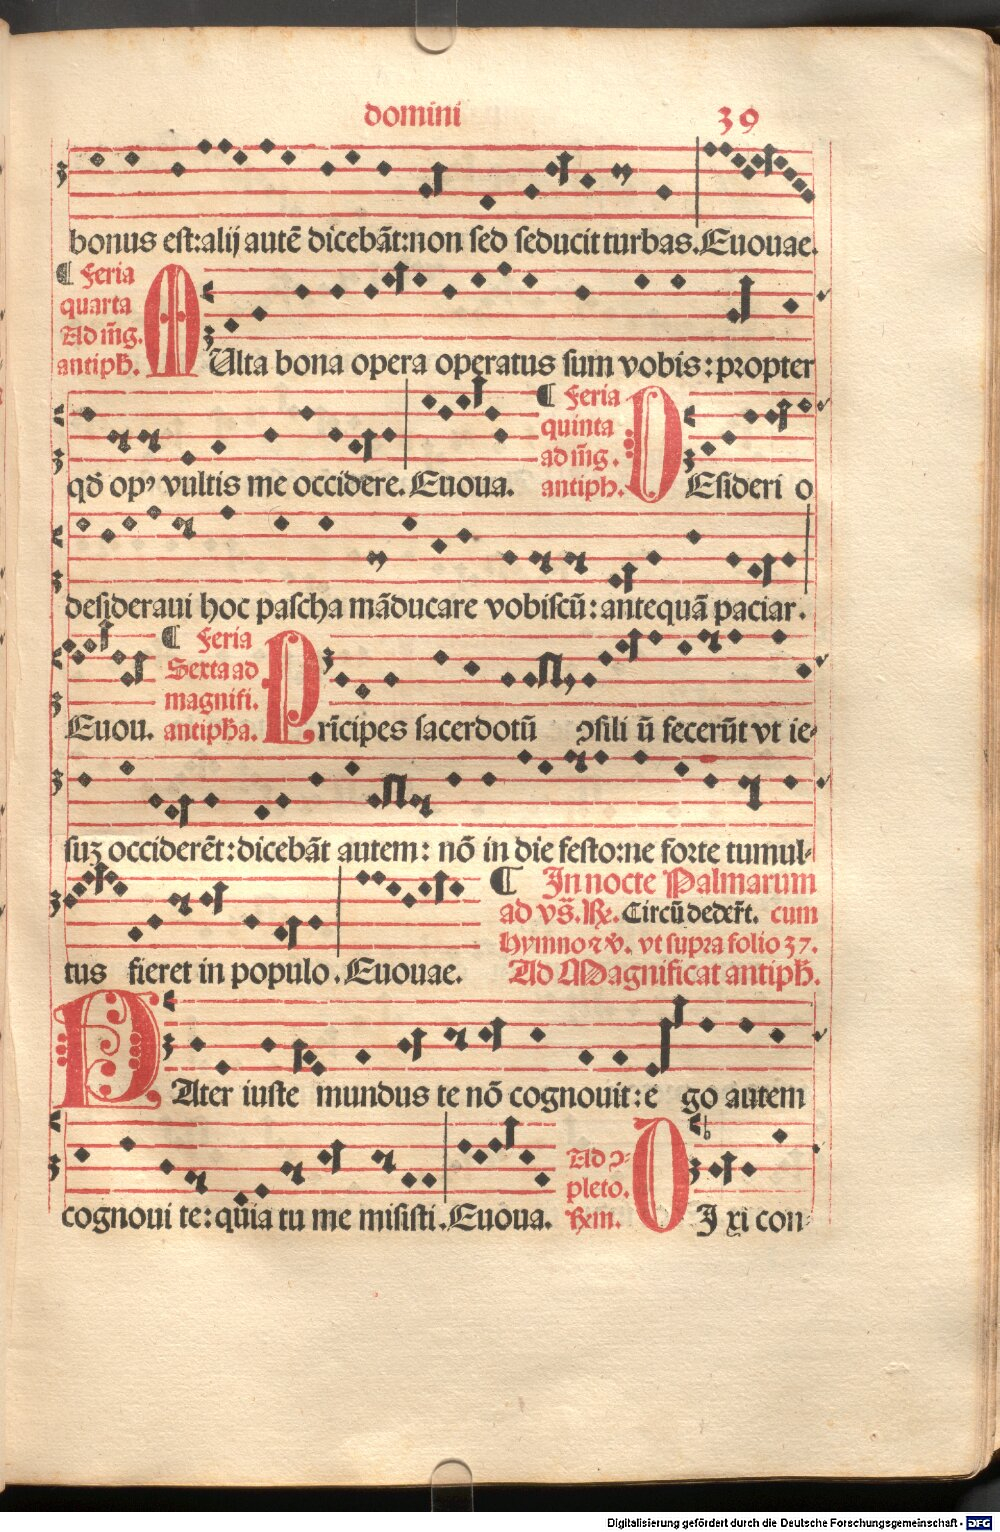 domini 39
bonus est:alij autē dicebāt:non sed seducit turbas.Euouae.
¶ Feria
quarta
Ad m̄g.
antiph̄.
MUlta bona opera operatus sum vobis:propter
qd̄ opꝰ vultis me occidere. Euoua.
¶ Feria
quinta
ad m̄g.
antiph.
DEsideri o
desideraui hoc pascha māducare vobiscū:antequā paciar.
Euou.
¶ Feria
Sexta ad
magnifi.
antiph̄a.
Prīcipes sacerdotū ↄsili ū fecerūt vt ie-
suʒ occiderēt:dicebāt autem: nō in die festo:ne forte tumul-
tus fieret in populo. Euouae.
¶ In nocte Palmarum
ad vs̄. ℞. Circūdedert̄. cum
hymno ⁊ ℣. vt supra folio 37.
Ad Magnificat antiph̄.
PAter iuste mundus te nō cognouit:e go autem
cognoui te:quia tu me misisti. Euoua.
Ad ↄ-
pleto.
℞m.
DI xi con-
Digitalisierung gefördert durch die Deutsche Forschungsgemeinschaft - DFG